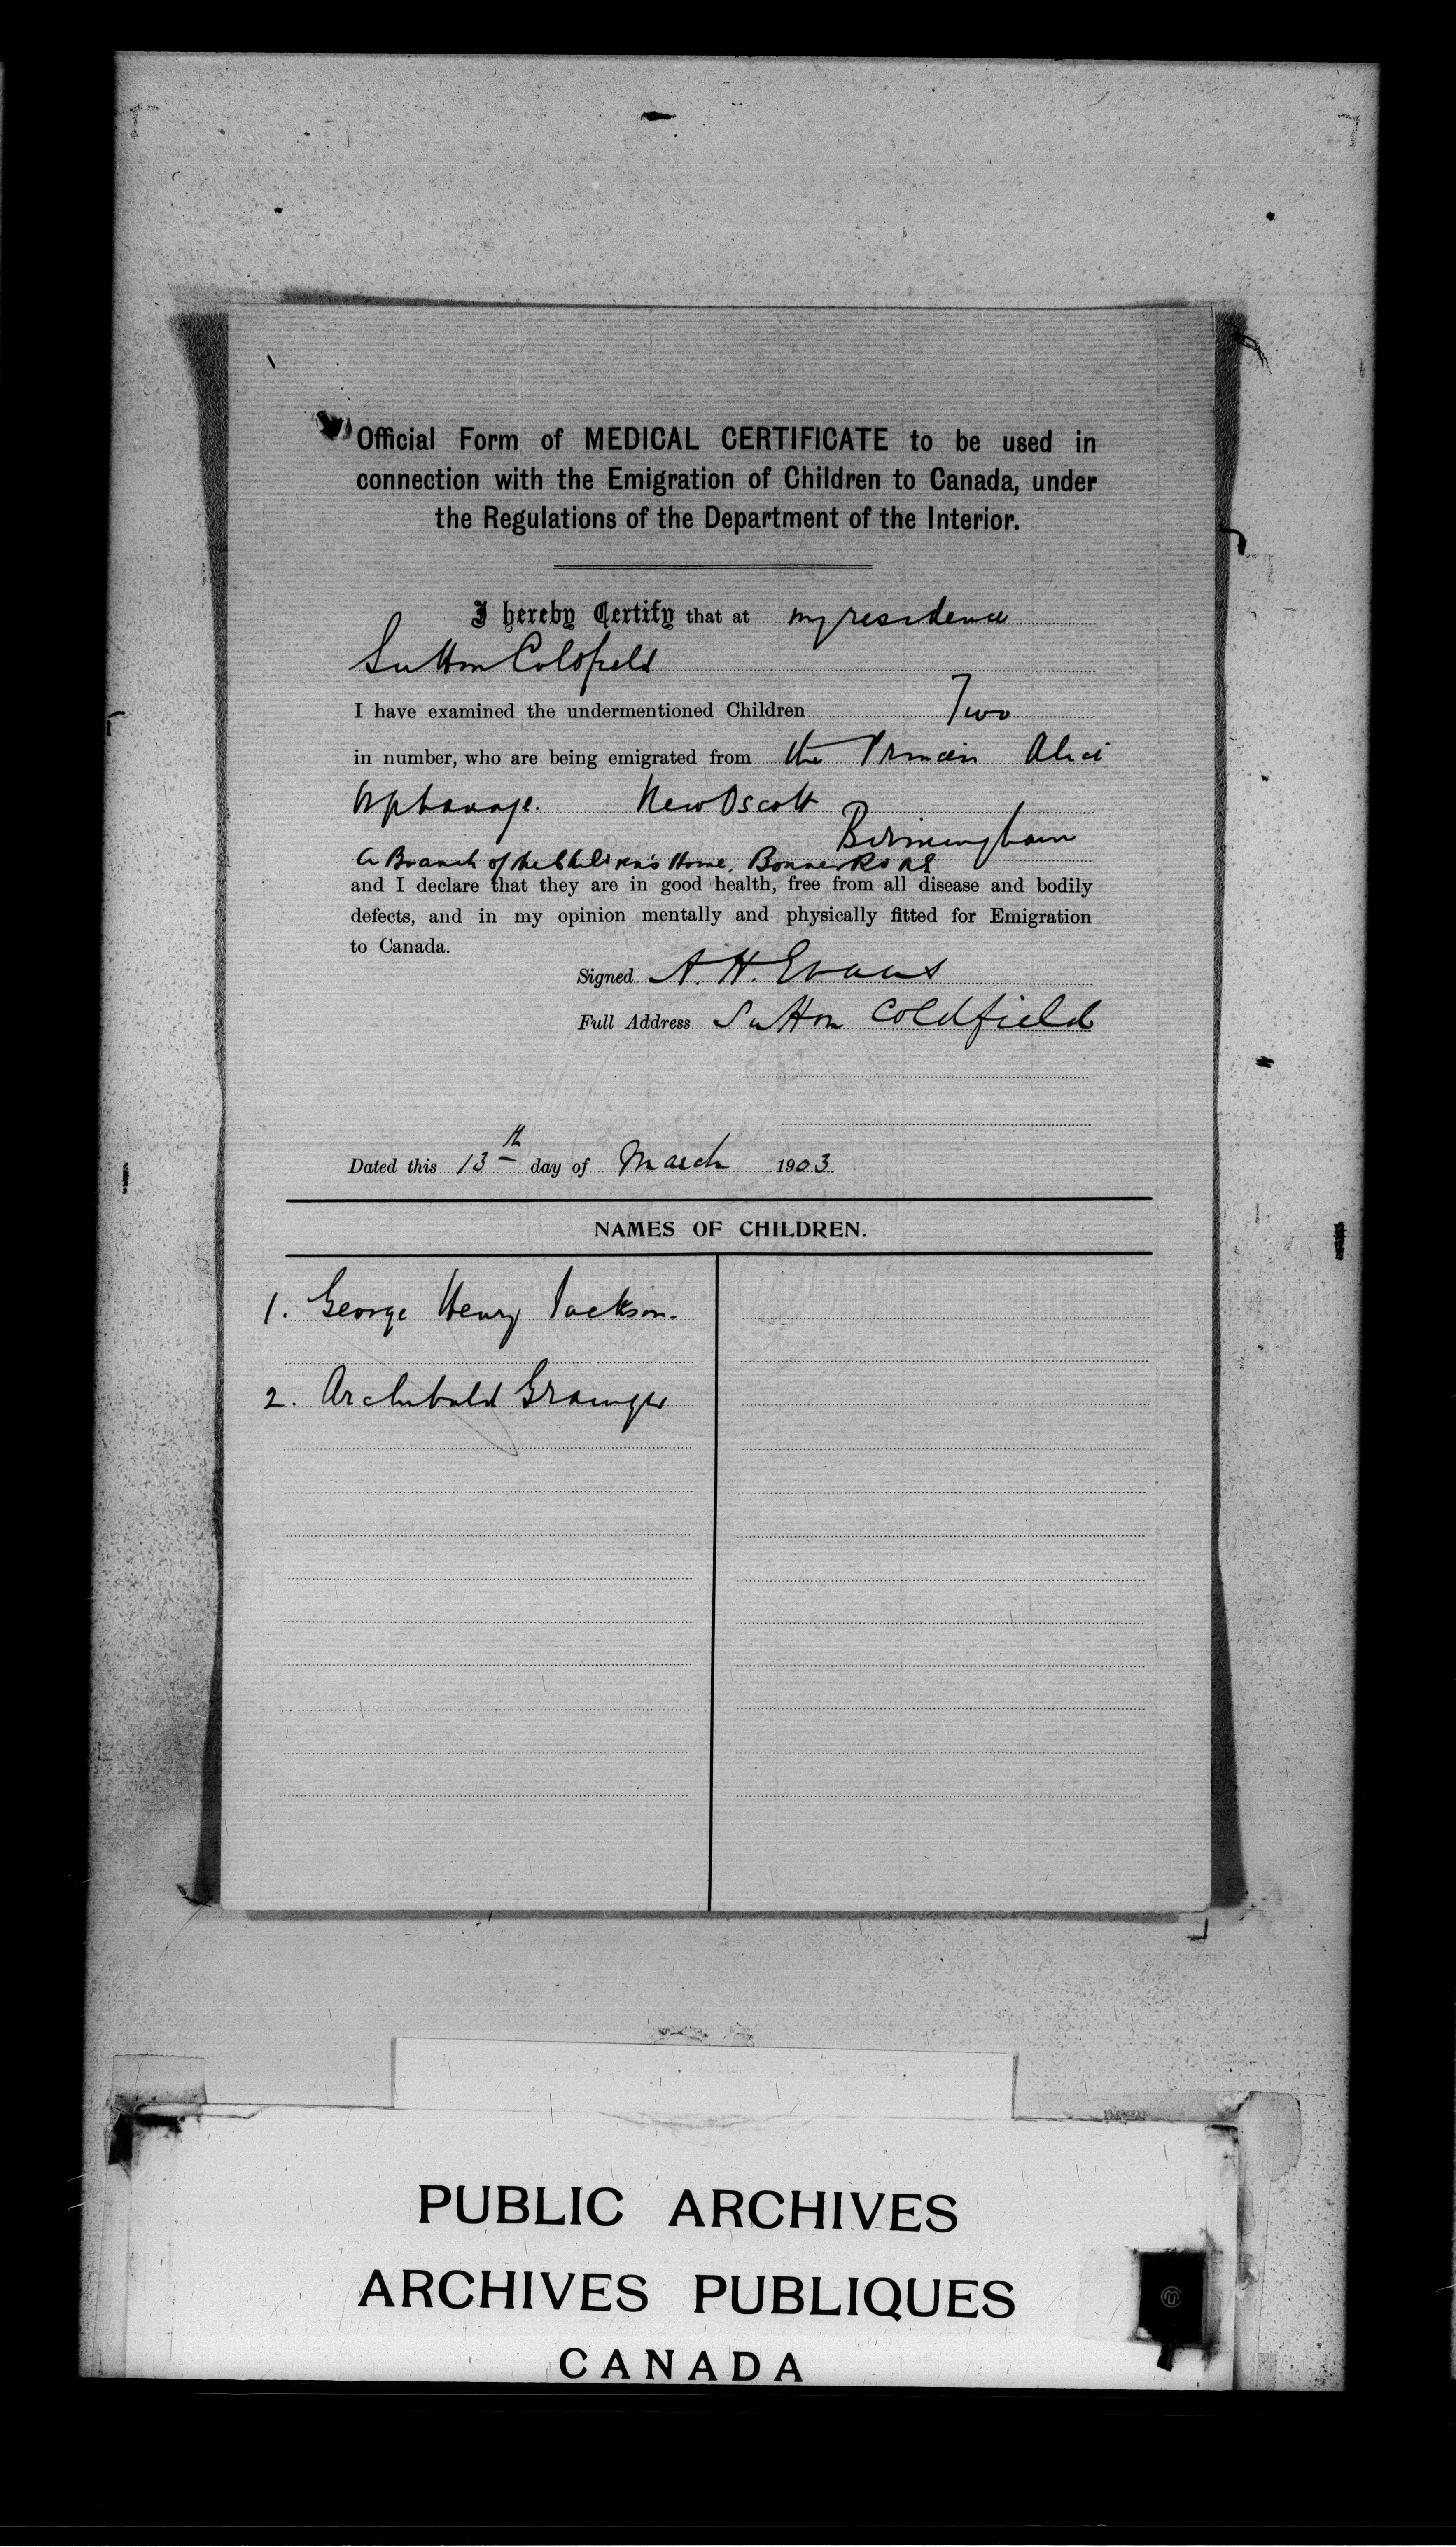 Official Form of MEDICAL CERTIFICATE to be used in
connection with the Emigration of Children to Canada, under
the Regulations of the Department of the Interior.
I hereby Certify that at my residence
Sutton Coldfield
I have examined the undermentioned Children Two
in number, who are being emigrated from the Princess Alice
Orphanage. New Oscott
Birmingham
A Branch of the Children's Home, Bonner Road
and I declare that they are in good health, free from all disease and bodily
defects, and in my opinion mentally and physically fitted for Emigration
to Canada.
Signed A. H. Evans
Full Address Sutton Coldfield
Dated this 13th day of March 1903.
NAMES OF CHILDREN.
1. George Henry Jackson.
2. Archibald Grainger
PUBLIC ARCHIVES
ARCHIVES PUBLIQUES
CANADA